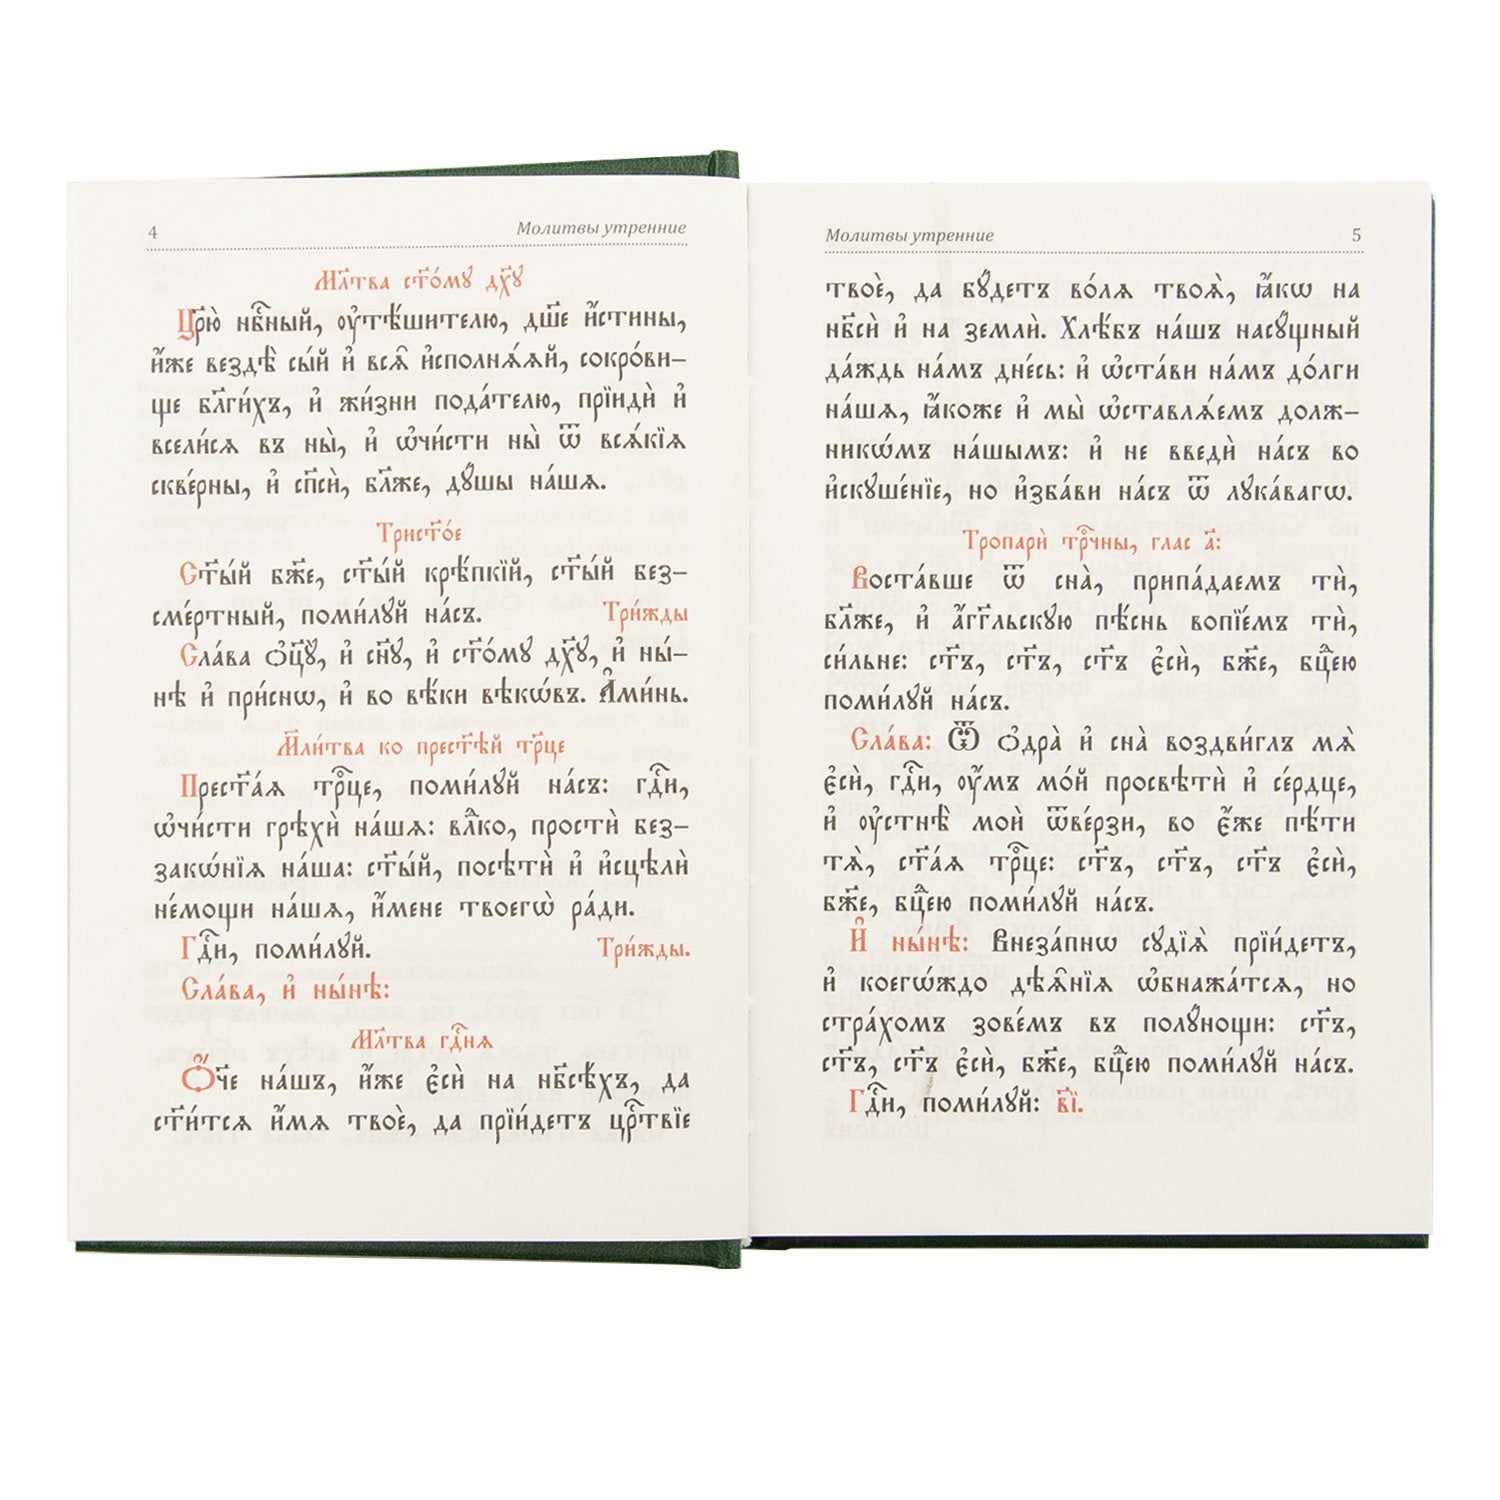 4 Молитвы утренние
Мл҃тва ст҃о́мꙋ дх҃ꙋ
Цр҃ю̀ нбⷭ҇ный, ᲂу҆тѣ́шителю, дш҃е и҆́стины,
и҆́же вездѣ̀ сы́й и҆ всѧ̑ и҆сполнѧ́ѧй, сокро́ви-
ще бл҃ги́хъ, и҆ жи́зни пода́телю, прїидѝ и҆
всели́сѧ въ ны̀, и҆ ѡ҆чи́сти ны̀ ѿ всѧ́кїѧ
скве́рны, и҆ сп҃сѝ, бл҃же, дꙋ́шы на́шѧ.
Трист҃о́е
Ст҃ы́й бж҃е, ст҃ы́й крѣ́пкїй, ст҃ы́й без-
сме́ртный, поми́лꙋй на́съ. Три́жды
Сла́ва ѻ҆ц҃ꙋ̀, и҆ сн҃ꙋ, и҆ ст҃о́мꙋ дх҃ꙋ, и҆ ны́-
нѣ и҆ при́снѡ, и҆ во вѣ́ки вѣкѡ́въ. А҆ми́нь.
Мл҃и́тва ко прест҃ѣ́й трⷪ҇це
Прест҃а́ѧ трⷪ҇це, поми́лꙋй на́съ: гдⷭ҇и,
ѡ҆чи́сти грѣхѝ на́шѧ: влⷣко, простѝ без-
закѡ́нїѧ на́ша: ст҃ы́й, посѣтѝ и҆ и҆сцѣлѝ
не́мощи на́шѧ, и҆́мене твоегѡ̀ ра́ди.
Гдⷭ҇и, поми́лꙋй. Три́жды.
Сла́ва, и҆ ны́нѣ:
Мл҃тва гдⷭ҇нѧ
Ѻ҆́ч҃е на́шъ, и҆́же є҆сѝ на нб҃сѣ́хъ, да
ст҃и́тсѧ и҆́мѧ твоѐ, да прїи́детъ црⷭ҇твїе
Молитвы утренние 5
твоѐ, да бꙋ́детъ во́лѧ твоѧ̀, ꙗ҆́кѡ на
нб҃сѝ и҆ на землѝ. Хлѣ́бъ на́шъ насꙋ́щный
да́ждь на́мъ дне́сь: и҆ ѡ҆ста́ви на́мъ до́лги
на́шѧ, ꙗ҆́коже и҆ мы̀ ѡ҆ставлѧ́емъ долж-
никѡ́мъ на́шымъ: и҆ не введѝ на́съ во
и҆скꙋше́нїе, но и҆зба́ви на́съ ѿ лꙋка́вагѡ.
Тропарѝ трⷪ҇чны, глас а҃:
Воста́вше ѿ сна̀, припа́даемъ тѝ,
бл҃же, и҆ а҆́гг҃льскꙋю пѣ́снь вопїе́мъ тѝ,
си́льне: ст҃ъ, ст҃ъ, ст҃ъ є҆сѝ, бж҃е, бцⷣею
поми́лꙋй на́съ.
Сла́ва: Ѿ ѻ҆дра̀ и҆ сна̀ воздви́глъ мѧ̀
є҆сѝ, гдⷭ҇и, ᲂу҆́мъ мо́й просвѣтѝ и҆ се́рдце,
и҆ ᲂу҆стнѣ̀ моѝ ѿве́рзи, во є҆́же пѣ́ти
тѧ̀, ст҃а́ѧ трⷪ҇це: ст҃ъ, ст҃ъ, ст҃ъ є҆сѝ,
бж҃е, бцⷣею поми́лꙋй на́съ.
И҆ ны́нѣ: Внеза́пнѡ сꙋдїѧ̀ прїи́детъ,
и҆ коегѡ́ждо дѣѧ̑нїѧ ѡ҆бнажа́тсѧ, но
стра́хомъ зове́мъ въ полꙋ́нощи: ст҃ъ,
ст҃ъ, ст҃ъ є҆сѝ, бж҃е, бцⷣею поми́лꙋй на́съ.
Гдⷭ҇и, поми́лꙋй: в҃і.